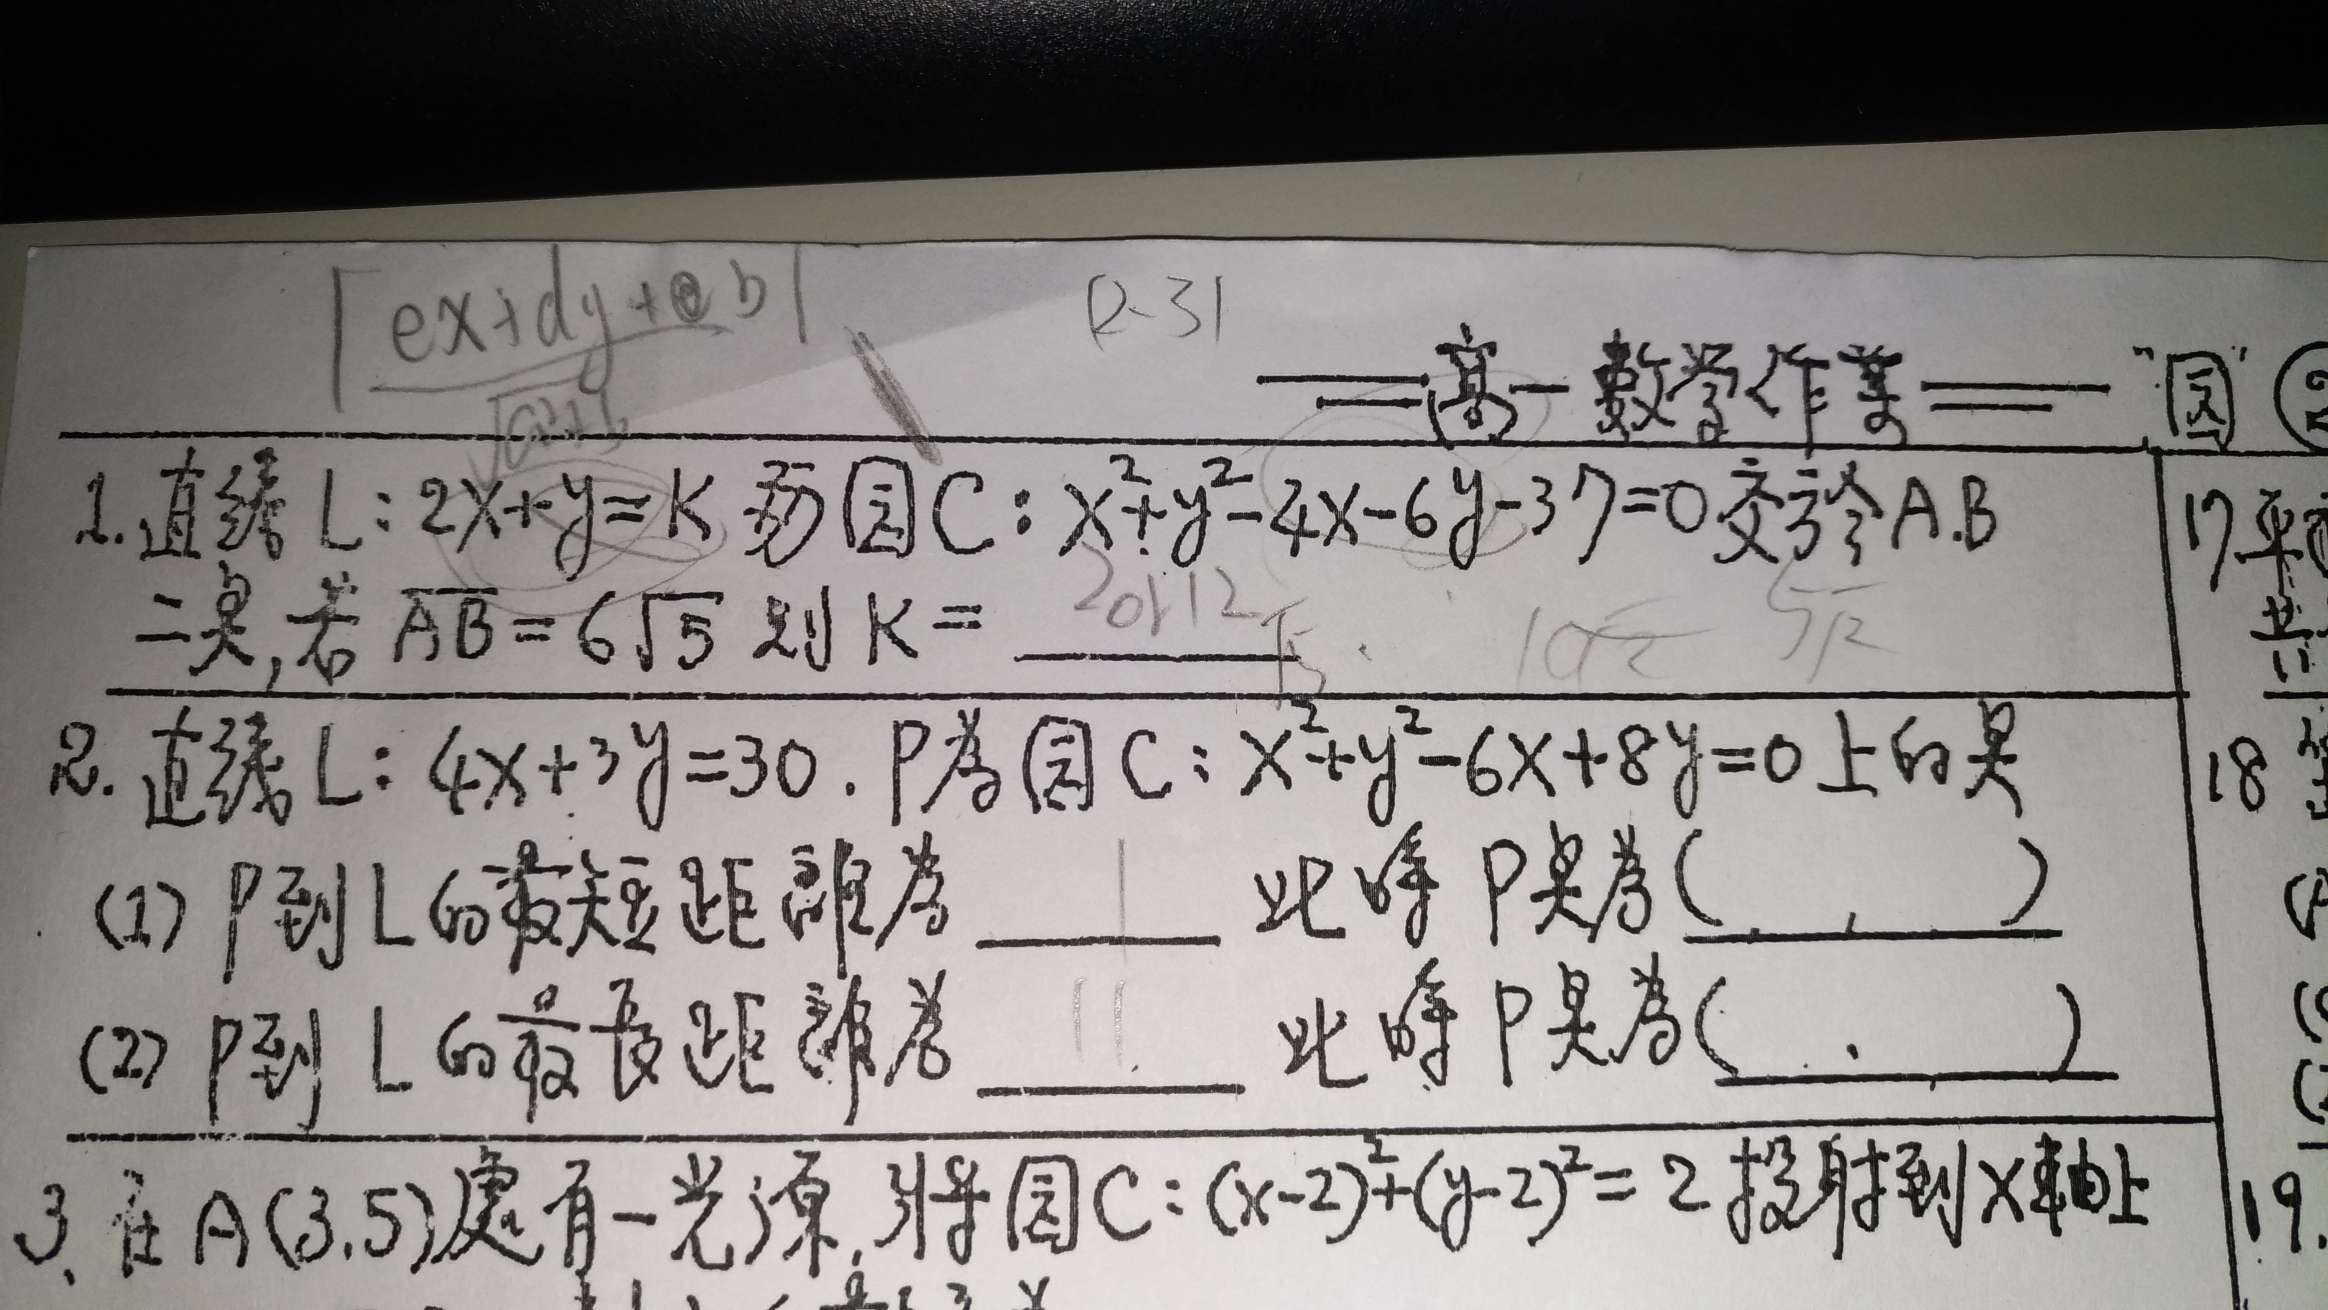 |ex+dy+b|
R-31
高一數學作業 "圓" ②
√a²+b
1. 直線 L: 2x+y=K 與圓 C: x²+y²-4x-6y-37=0 交於 A.B
二点, 若 AB=6√5 則 K= 2or12
5√2
2. 直線 L: 4x+3y=30. P為圓 C: x²+y²-6x+8y=0 上的点
(1) P到L的最短距離為 1 此時P点為( , )
(2) P到L的最長距離為 11 此時P点為( . )
3. 在 A(3.5)處有一光源, 將圓 C: (x-2)²+(y-2)²=2 投射到 X軸上
17 平
18
19.